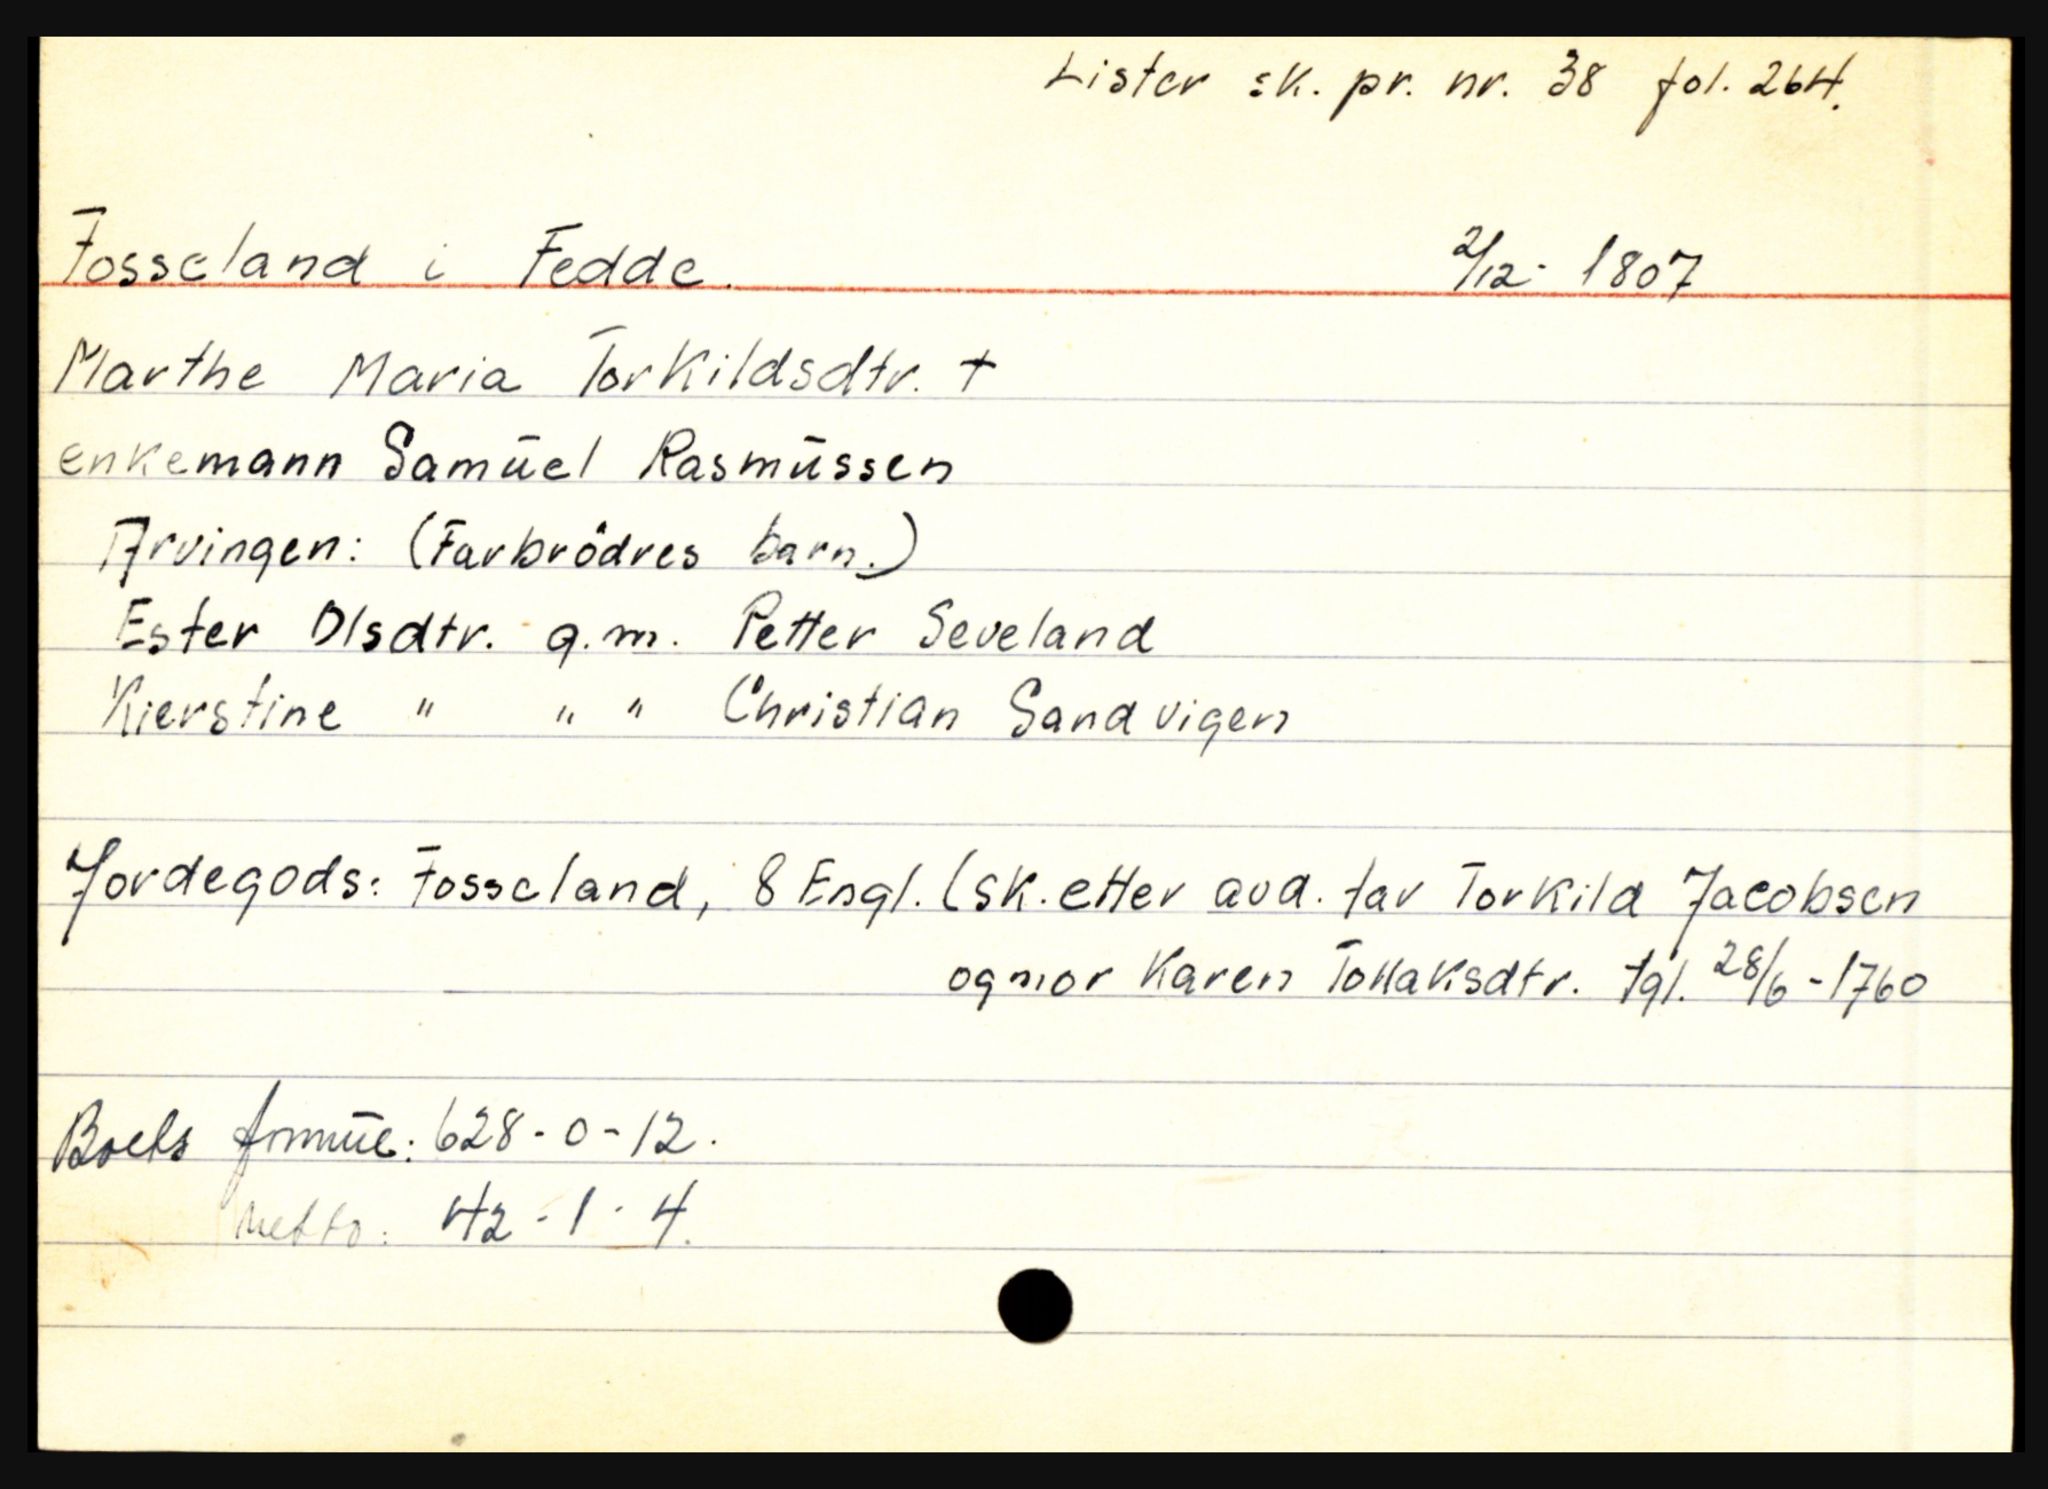 Lister sk. pr. nr. 38 fol. 264.
Fosseland i Fedde. 2/12- 1807
Marthe Maria Torkildsdtr. †
enkemann Samūel Rasmūssen
Arvingen: (Farbrödres barn.)
Ester Olsdtr. g.m. Petter Seveland
Kierstine " " " Christian Sandvigen
Jordegods: Fosseland, 8 Engl. (sk. etter avd. far Torkild Jacobsen
og mor Karen Tollaksdtr. tgl. 28/6-1760
Boets formūe: 628-0-12.
netto: 42-1-4.